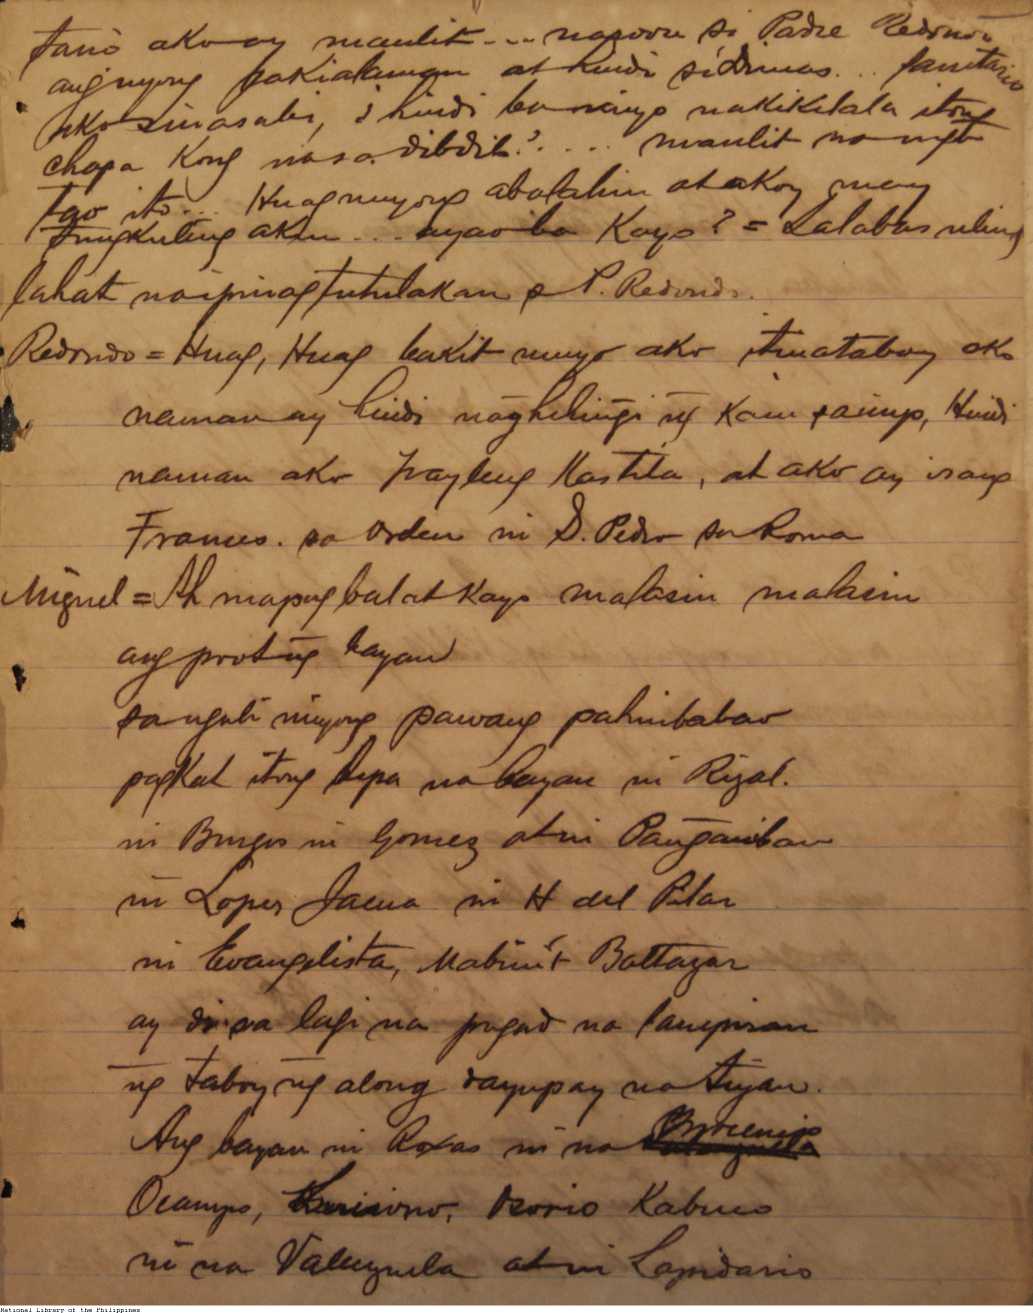 tano ako ay maulit... naroon si Padre Redondo
ang nyong pakialaman at hindi si Dimas... Sanitario
ako sinasabi, ¿hindi ba ninyo nakikilala itong
chapa Kong nasa dibdib?.... maulit na
tao ito... Huag nuyong abalahin at akoy may
tungkuling akin... ayao ba Kayo? = Lalabas uling
lahat na ipinagtutulakan si P. Redondo.
Redondo = Huag, Huag bakit nuyo ako itinataboy ako
naman ay hindi nāghihingī nḡ Kain sainyo, Hindi
naman ako frayleng Kastila, at ako ay isang
Frances. sa orden ni S. Pedro sa Roma
Miguel = Ah mapag balat Kayo malasin malasin
ang nḡ bayan
sa nguli niyong pawang pahimbabao
pagkat itong lupa na bayan ni Rizal.
ni Burgos ni Gomez at ni Panḡaniban
ni Lopes Jaena ni H del Pilar
ni Evangelista, Mabini't Baltazar
ay di sa lagi na pugad na
nḡ taboy nḡ along dayupay na
Ang bayan ni Roxas ni na
Ocampo, Osorio Kabuco
ni na Valenzuela at ni Lapidario
National Library of the Philippines